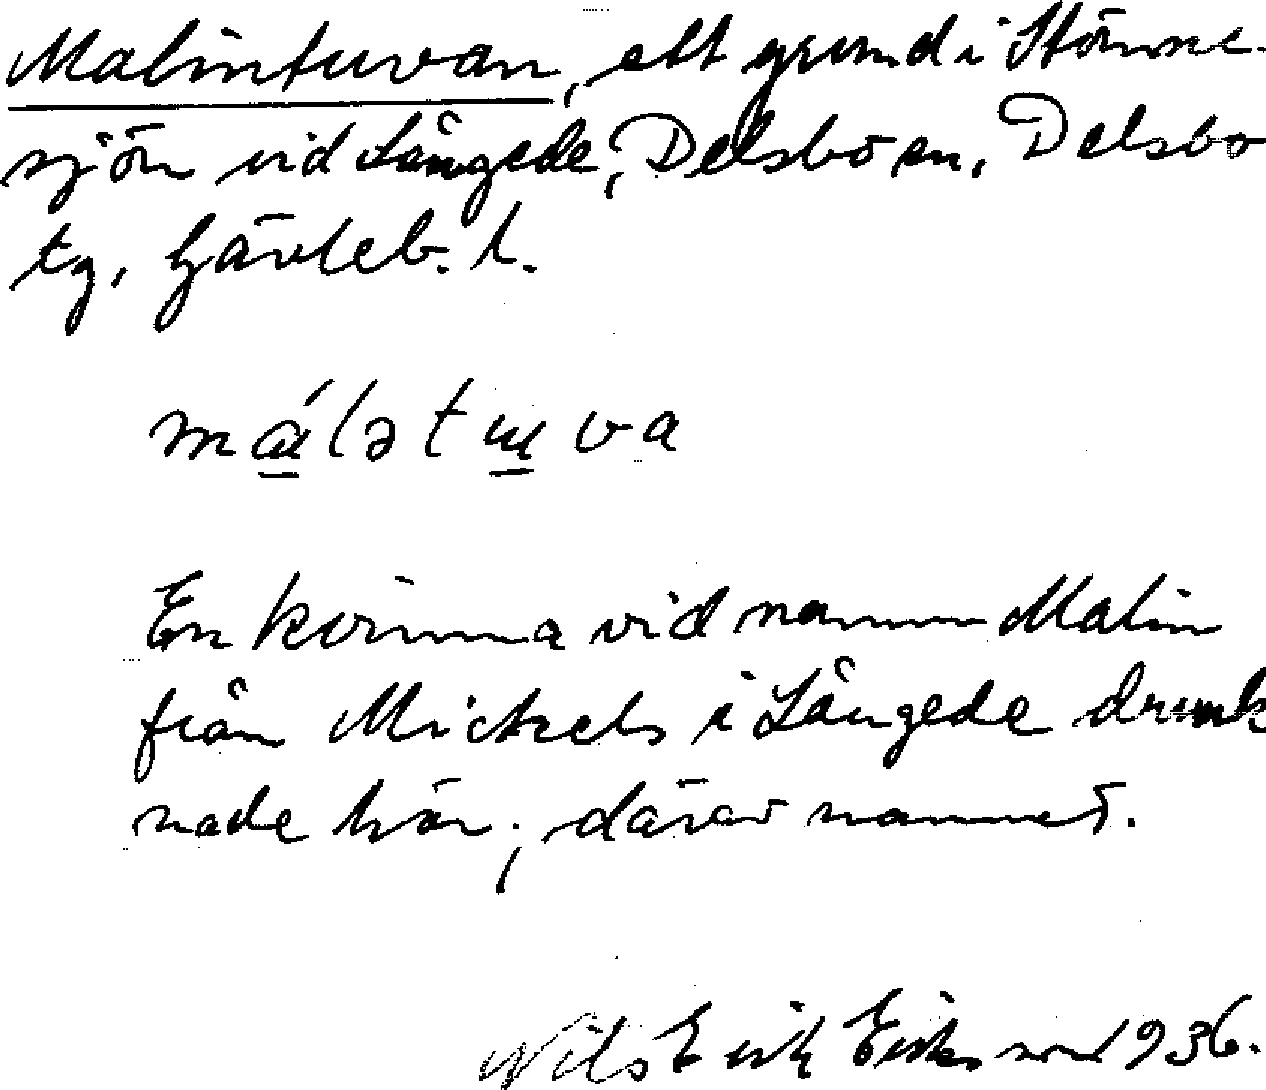 Malintuvan, ett grund i Stömne-
sjön vid Långede, Delsbo sn, Delsbo
tg, Gävleb. l.
má̱lətu̱va
En kvinna vid namn Malin
från Mickels i Långede drunk
nade här; därav namnet.
Nils Erik Eriksson 1936.